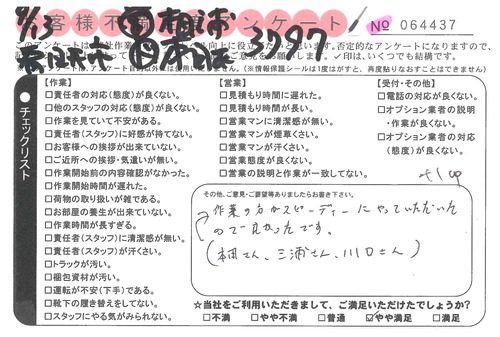 お客様不満足アンケート
№ 064437
9/13
3797
このアンケートは
【作業】
□責任者の対応(態度)が良くない。
□他のスタッフの対応(態度)が良くない。
□作業を見ていて不安がある。
□責任者(スタッフ)に好感が持てない。
□お客様への挨拶が出来ていない。
□ご近所への挨拶・気遣いが無い。
□作業開始前の内容確認がなかった。
□作業開始時間が遅れた。
□荷物の取り扱いが雑である。
□お部屋の養生が出来ていない。
□作業時間が長すぎる。
□責任者(スタッフ)に清潔感が無い。
□責任者(スタッフ)が汗さい。
□トラックが汚い。
□梱包資材が汚い。
□運転が不安(下手)である。
□靴下の履き替えをしてない。
□スタッフにやる気がみられない。
【営業】
□見積もり時間に遅れた。
□見積もり時間が長い。
□営業マンに清潔感が無い。
□営業マンが煙草くさい。
□営業マンが汗さい。
□営業態度が良くない。
□営業の説明と作業が一致してない。
【受付・その他】
□電話の対応が良くない。
□オプション業者の説明
・作業が良くない。
□オプション業者の対応
(態度)が良くない。
●チェックリスト
その他、ご意見・ご要望等ありましたらお書き下さい。
作業の方がスピーディーにやっていただいた
ので良かったです。
(本田さん、三浦さん、川口さん)
☆当社をご利用いただきまして、ご満足いただけたでしょうか?
□不満 □やや不満 □普通 ☑やや満足 □満足